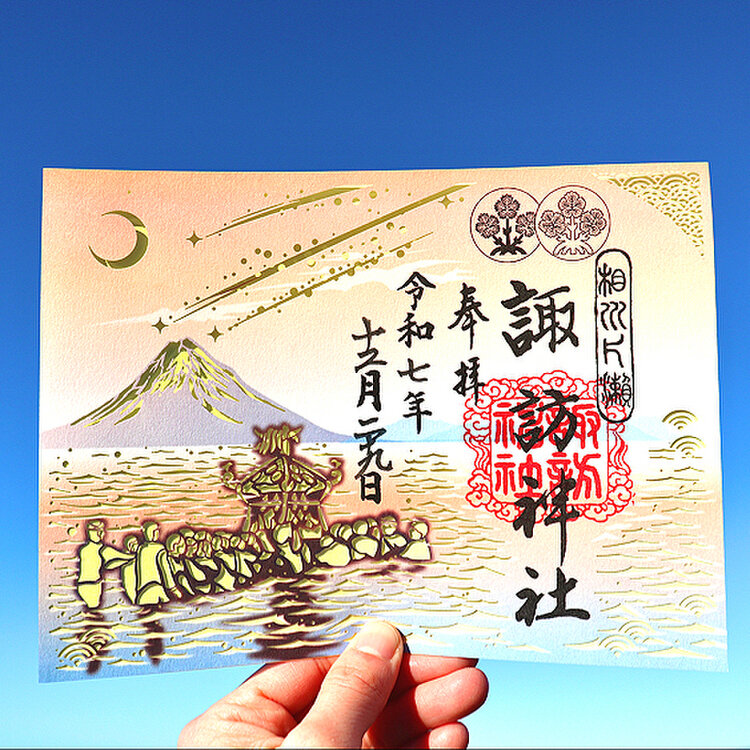 相州片瀬
諏訪神社
諏訪神社
奉拝
令和七年
十二月二十九日